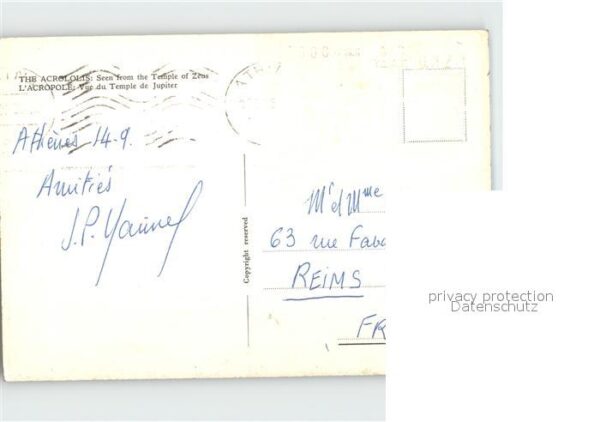 THE ACROLOLIS: Seen from the Temple of Zeus
L'ACROPOLE: Vue du Temple de Jupiter
Athènes 14.9.
Amitiés
J.P.
Copyright reserved
Mr et Mme
63 rue Fab
REIMS
FR
privacy protection
Datenschutz